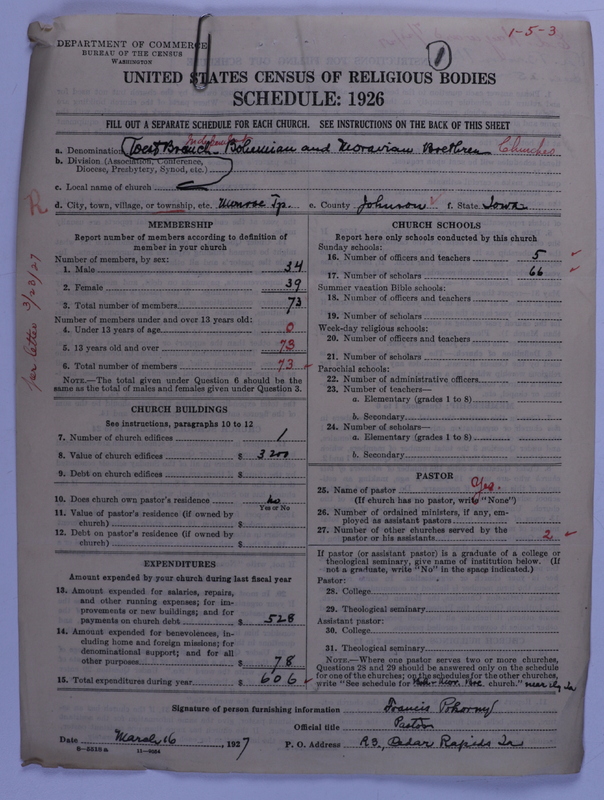 1-5-3
1
DEPARTMENT OF COMMERCE
BUREAU OF THE CENSUS
WASHINGTON
UNITED STATES CENSUS OF RELIGIOUS BODIES
SCHEDULE: 1926
FILL OUT A SEPARATE SCHEDULE FOR EACH CHURCH. SEE INSTRUCTIONS ON THE BACK OF THIS SHEET
Independent
a. Denomination West Branch Bohemian and Moravian Brethren Churches
b. Division (Association, Conference,
Diocese, Presbytery, Synod, etc.)
c. Local name of church
d. City, town, village, or township, etc. Monroe Tp. e. County Johnson f. State Iowa
R
per letter 3/23/27
MEMBERSHIP
Report number of members according to definition of
member in your church
Number of members, by sex:
1. Male 34
2. Female 39
3. Total number of members 73
Number of members under and over 13 years old:
4. Under 13 years of age 0
5. 13 years old and over 73
6. Total number of members 73
NOTE.—The total given under Question 6 should be the
same as the total of males and females given under Question 3.
CHURCH BUILDINGS
See instructions, paragraphs 10 to 12
7. Number of church edifices 1
8. Value of church edifices $ 3200
9. Debt on church edifices $
10. Does church own pastor's residence no
Yes or No
11. Value of pastor's residence (if owned by
church) $
12. Debt on pastor's residence (if owned by
church) $
EXPENDITURES
Amount expended by your church during last fiscal year
13. Amount expended for salaries, repairs,
and other running expenses; for im-
provements or new buildings; and for
payments on church debt $ 528
14. Amount expended for benevolences, in-
cluding home and foreign missions; for
denominational support; and for all
other purposes $ 78
15. Total expenditures during year $ 606
CHURCH SCHOOLS
Report here only schools conducted by this church
Sunday schools:
16. Number of officers and teachers 5
17. Number of scholars 66
Summer vacation Bible schools:
18. Number of officers and teachers
19. Number of scholars
Week-day religious schools:
20. Number of officers and teachers
21. Number of scholars
Parochial schools:
22. Number of administrative officers
23. Number of teachers—
a. Elementary (grades 1 to 8)
b. Secondary
24. Number of scholars—
a. Elementary (grades 1 to 8)
b. Secondary
PASTOR
25. Name of pastor Yes.
(If church has no pastor, write "None")
26. Number of ordained ministers, if any, em-
ployed as assistant pastors
27. Number of other churches served by the
pastor or his assistants 2
If pastor (or assistant pastor) is a graduate of a college or
theological seminary, give name of institution below. (If
not a graduate, write "No" in the space indicated.)
Pastor:
28. College
29. Theological seminary
Assistant pastor:
30. College
31. Theological seminary
NOTE.—Where one pastor serves two or more churches,
Questions 28 and 29 should be answered only on the schedule
for one of the churches; on the schedules for the other churches,
write "See schedule for Boh. Mor. Bre. church." near Ely Ia
Signature of person furnishing information Francis Pokorny
Official title Pastor
Date March 16, 1927 P. O. Address R3, Cedar Rapids Ia
8—5510 a 11—9064